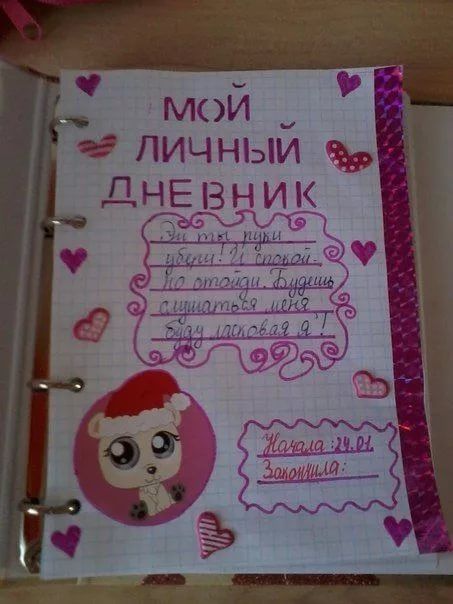 МОЙ
ЛИЧНЫЙ
ДНЕВНИК
Эй ты руки
убери! И спокой-
но отойди. Будешь
слушаться меня
буду ласковая я"!
Начала: 24.01
Закончила: